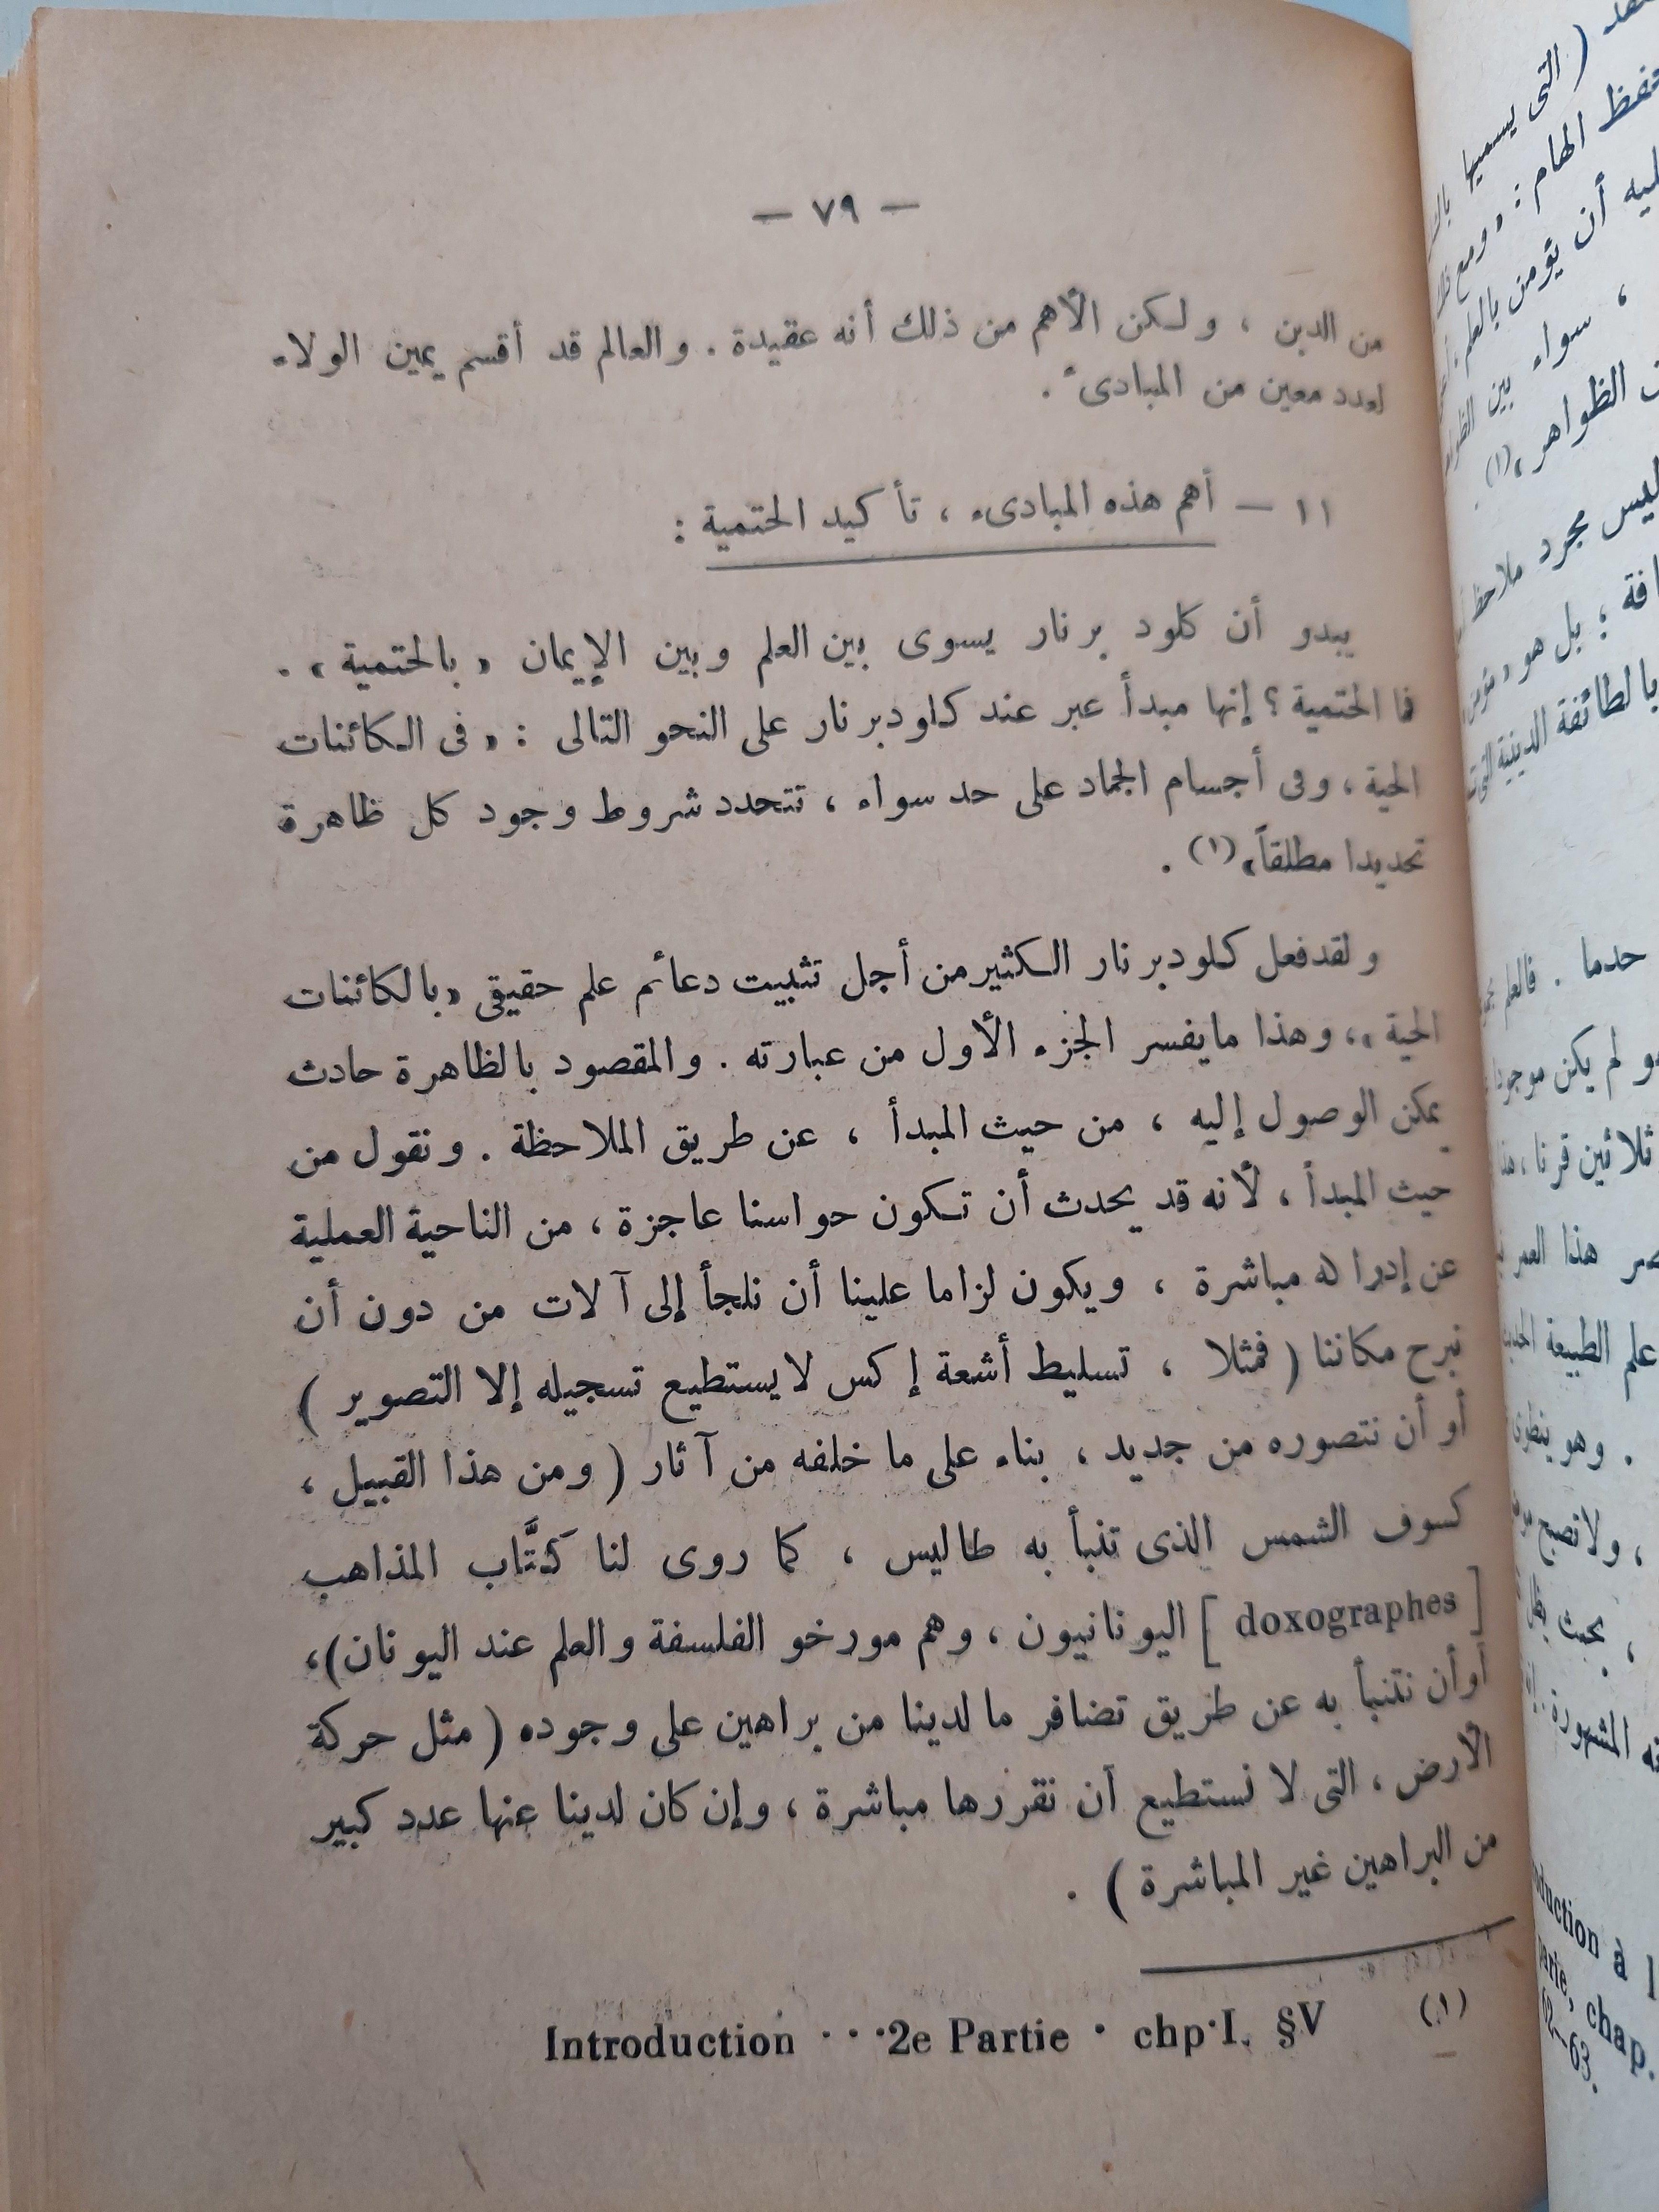 — ٧٩ —
من الدين ، ولكن الأهم من ذلك أنه عقيدة . والعالم قد أقسم يمين الولاء
لعدد معين من المبادىء .
١١ — أهم هذه المبادىء ، تأكيد الحتمية :
يبدو أن كلود برنار يسوى بين العلم وبين الإيمان « بالحتمية » .
فما الحتمية ؟ إنها مبدأ عبر عند كلود برنار على النحو التالى : « فى الكائنات
الحية ، وفى أجسام الجماد على حد سواء ، تتحدد شروط وجود كل ظاهرة
تحديدا مطلقاً » (١) .
ولقد فعل كلود برنار الكثير من أجل تثبيت دعائم علم حقيقى « بالكائنات
الحية » ، وهذا ما يفسر الجزء الأول من عبارته . والمقصود بالظاهرة حادث
يمكن الوصول إليه ، من حيث المبدأ ، عن طريق الملاحظة . ونقول من
حيث المبدأ ، لأنه قد يحدث أن تكون حواسنا عاجزة ، من الناحية العملية
عن إدراكه مباشرة ، ويكون لزاما علينا أن نلجأ إلى آلات من دون أن
نبرح مكاننا ( فمثلا ، تسليط أشعة إكس لا يستطيع تسجيله إلا التصوير )
أو أن نتصوره من جديد ، بناء على ما خلفه من آثار ( ومن هذا القبيل ،
كسوف الشمس الذى تنبأ به طاليس ، كما روى لنا كتَّاب المذاهب
[ doxographes ] اليونانيون ، وهم مورخو الفلسفة والعلم عند اليونان ) ،
أو أن نتنبأ به عن طريق تضافر ما لدينا من براهين على وجوده ( مثل حركة
الأرض ، التى لا نستطيع أن نقررها مباشرة ، وإن كان لدينا عنها عدد كبير
من البراهين غير المباشرة ) .
(١) Introduction ... 2e Partie . chp. I, §V
( التى يسميها
أن يؤمن بالعلم
، سواء بين
الظواهر » (١)
ليس مجرد
بل هو
بالطائفة الدينية
حدما . فالعلم
لم يكن
ثلاثين قرنا ،
هذا العمر
علم الطبيعة
. وهو
، ولا تصبح
، بحيث
المشهورة
chap.
62—63.